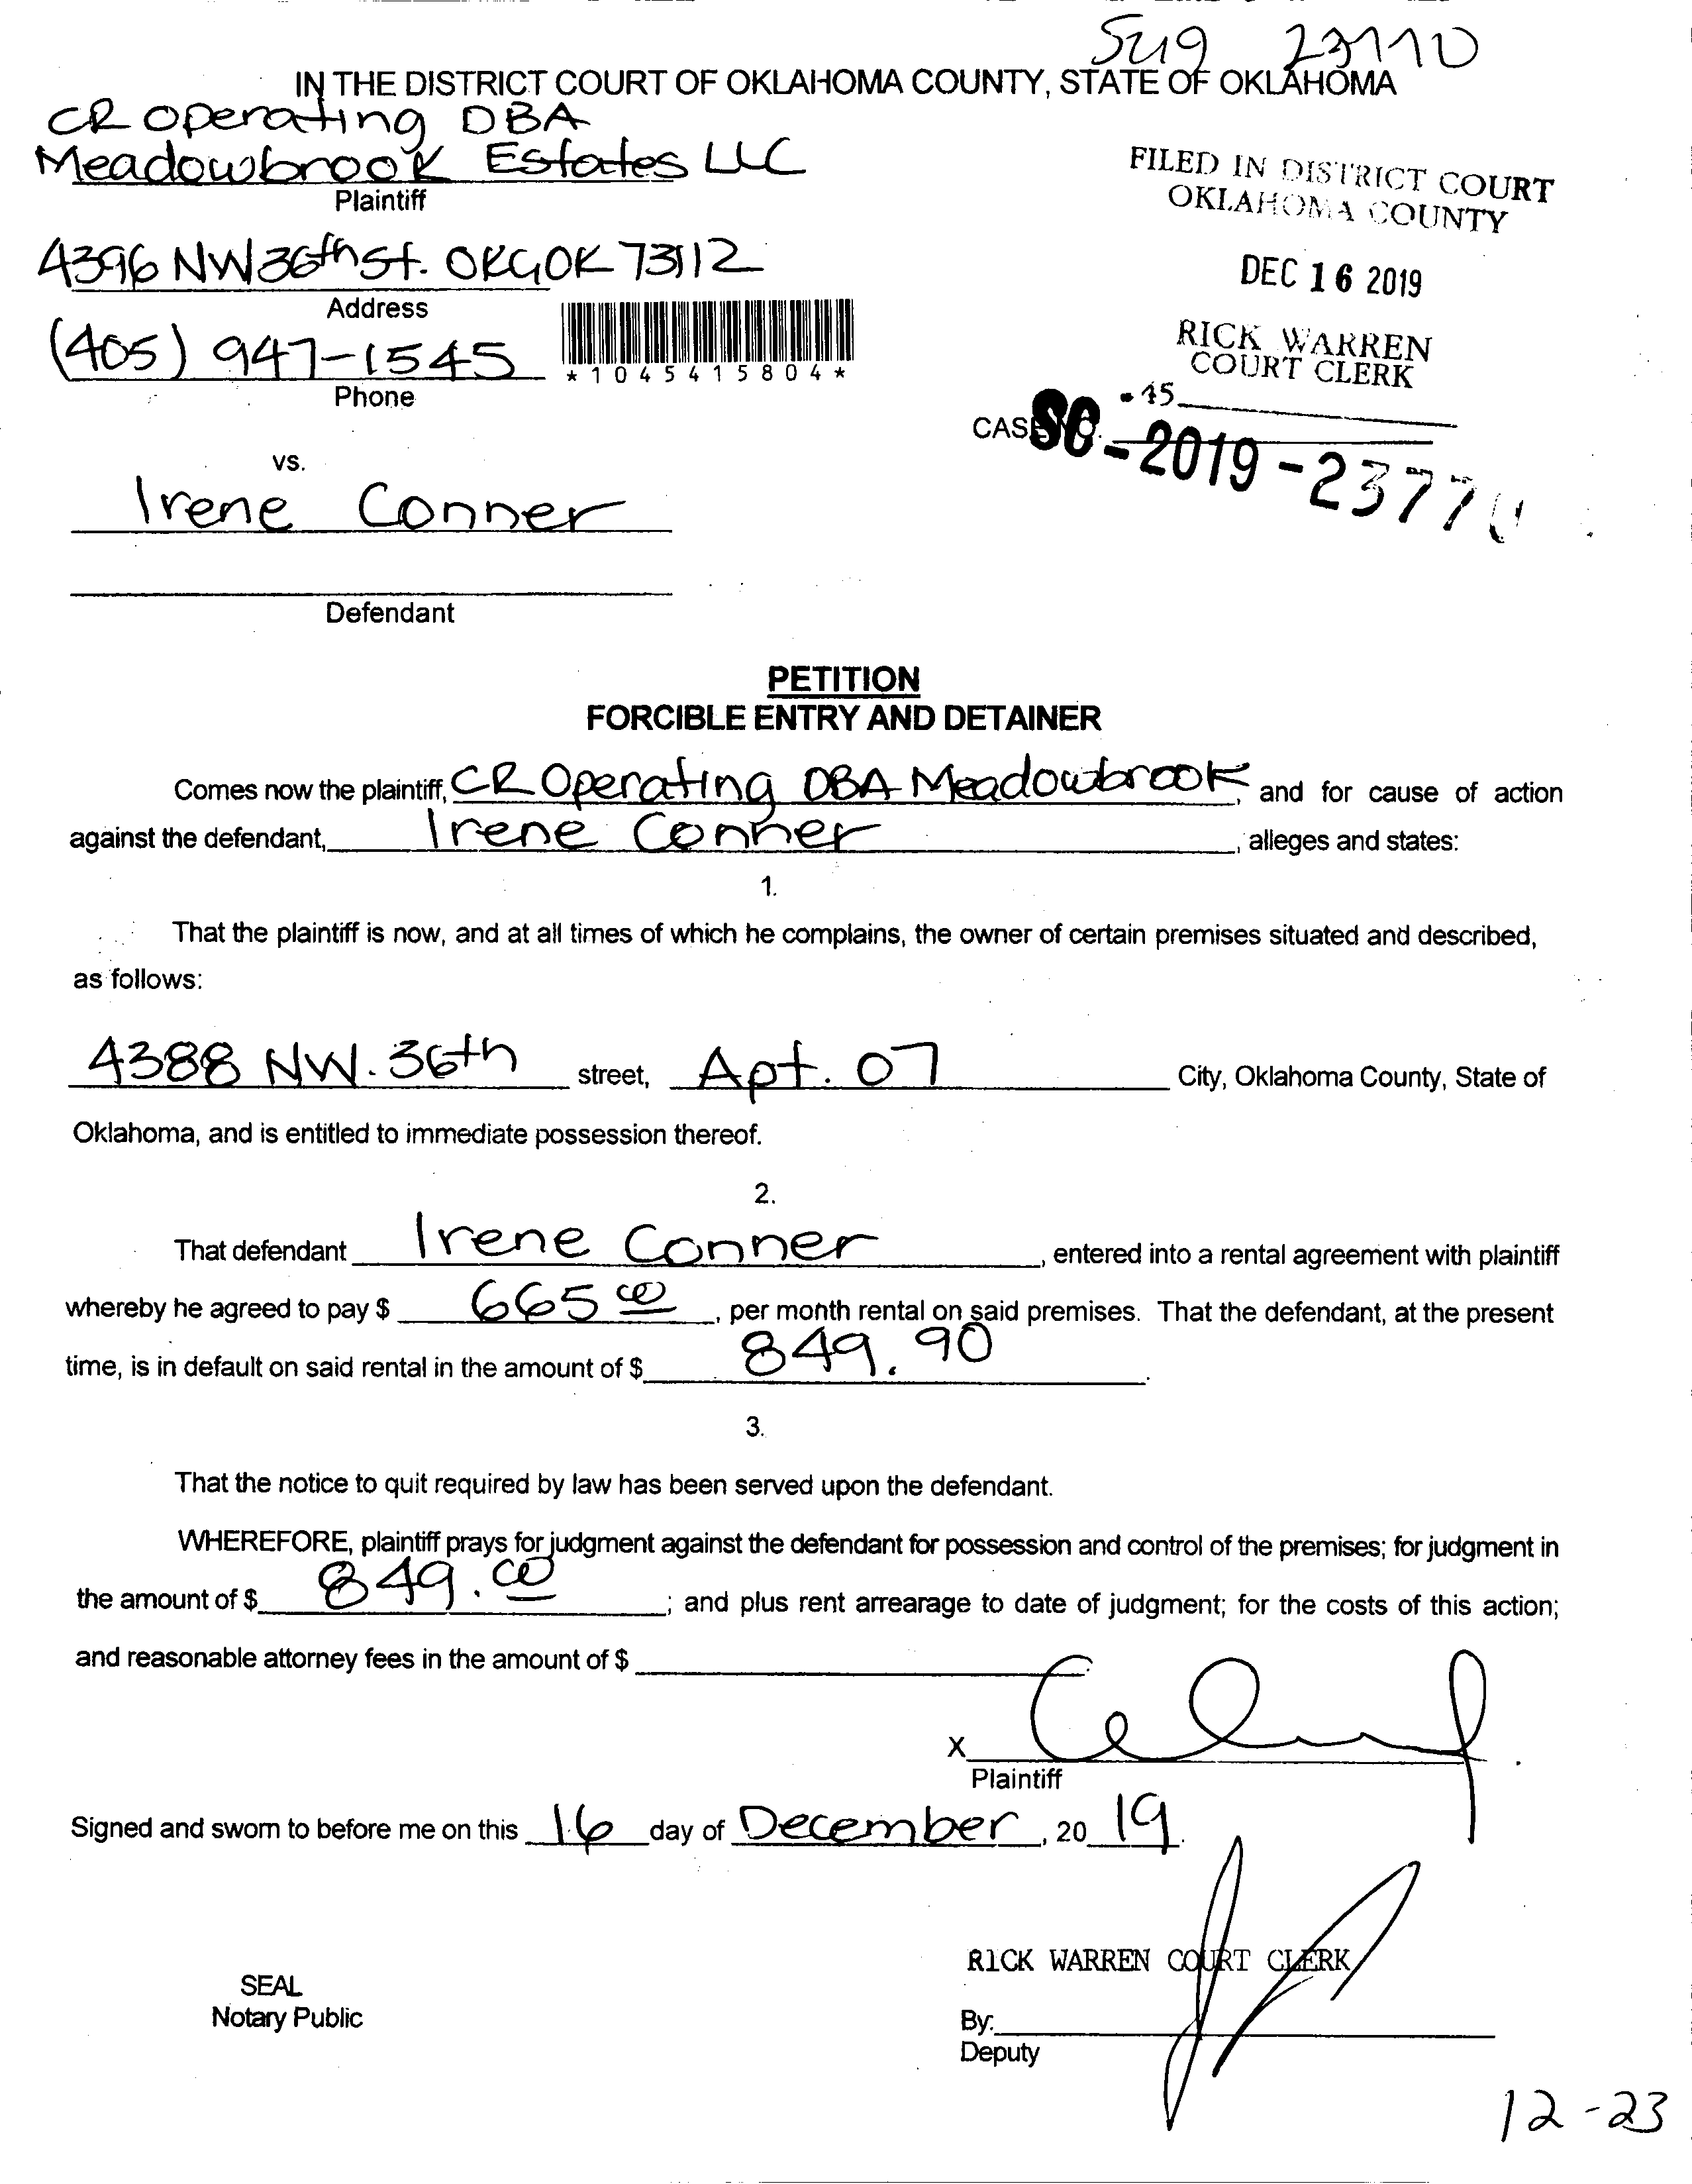 IN THE DISTRICT COURT OF OKLAHOMA COUNTY, STATE OF OKLAHOMA
CR Operating DBA
Meadowbrook Estates LLC
Plaintiff
4396 NW 36th St. OKC OK 73112
Address
(405) 947-1545
Phone
*1045415804*
FILED IN DISTRICT COURT
OKLAHOMA COUNTY
DEC 16 2019
RICK WARREN
COURT CLERK
45
CASE NO. SC-2019-2377
vs.
Irene Conner
Defendant
PETITION
FORCIBLE ENTRY AND DETAINER
Comes now the plaintiff, CR Operating DBA Meadowbrook, and for cause of action
against the defendant, Irene Conner, alleges and states:
1.
That the plaintiff is now, and at all times of which he complains, the owner of certain premises situated and described,
as follows:
4388 NW. 36th street, Apt. 07 City, Oklahoma County, State of
Oklahoma, and is entitled to immediate possession thereof.
2.
That defendant Irene Conner, entered into a rental agreement with plaintiff
whereby he agreed to pay $ 665 00, per month rental on said premises. That the defendant, at the present
time, is in default on said rental in the amount of $ 849.90.
3.
That the notice to quit required by law has been served upon the defendant.
WHEREFORE, plaintiff prays for judgment against the defendant for possession and control of the premises; for judgment in
the amount of $ 849.00; and plus rent arrearage to date of judgment; for the costs of this action;
and reasonable attorney fees in the amount of $
X
Plaintiff
Signed and sworn to before me on this 16 day of December, 20 19.
RICK WARREN COURT CLERK
SEAL
Notary Public
By:
Deputy
12-23